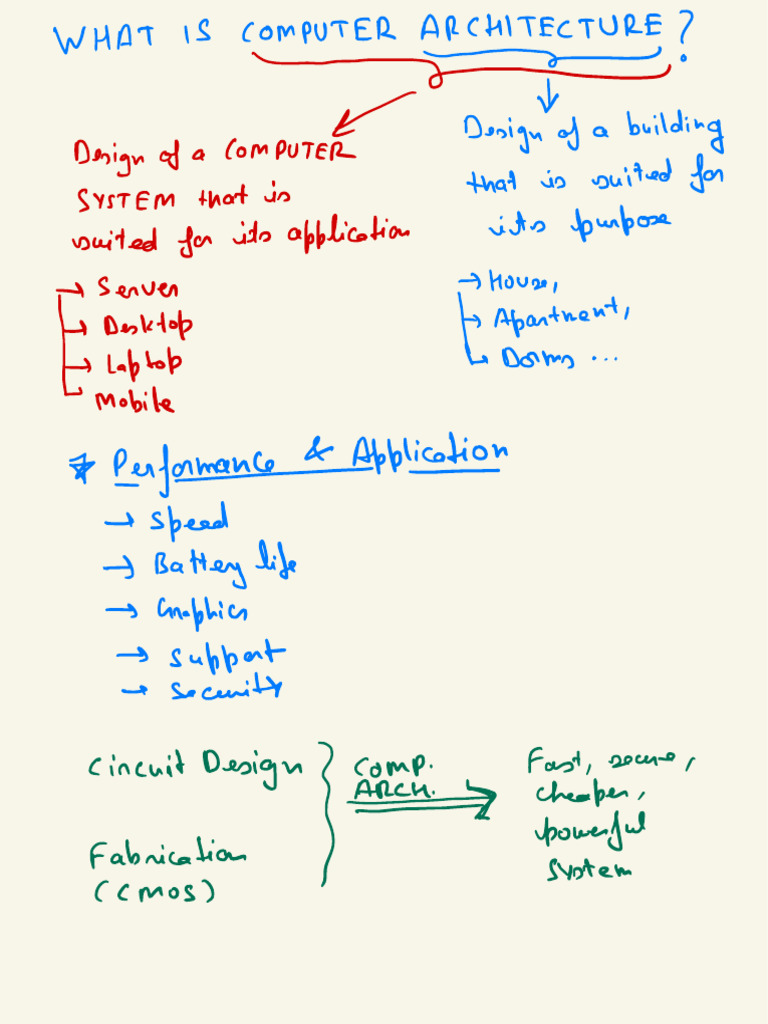 WHAT IS COMPUTER ARCHITECTURE?
Design of a COMPUTER
SYSTEM that is
suited for its application
→ Server
→ Desktop
→ Laptop
Mobile
Design of a building
that is suited for
its purpose
→ House,
→ Apartment,
Dorms ...
* Performance & Application
→ Speed
→ Battery life
→ Graphics
→ Support
→ Security
Circuit Design
Fabrication
(CMOS)
COMP.
ARCH.
Fast, secure,
cheaper,
powerful
system